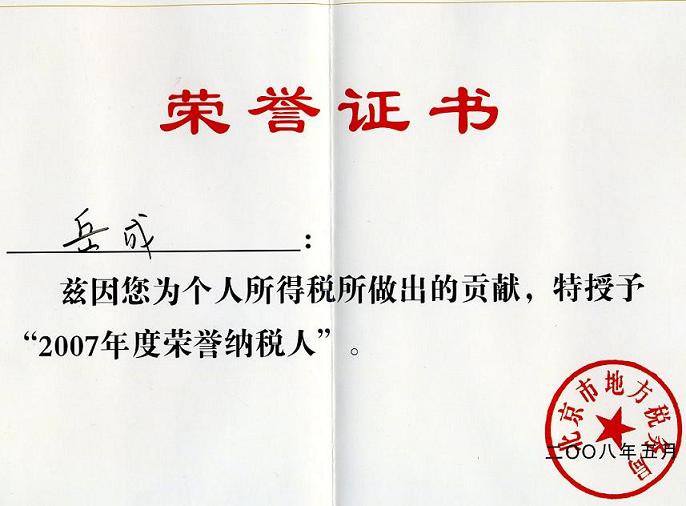 荣誉证书
岳成：
兹因您为个人所得税所做出的贡献，特授予
“2007年度荣誉纳税人”。
北京市地方税务局
二〇〇八年五月